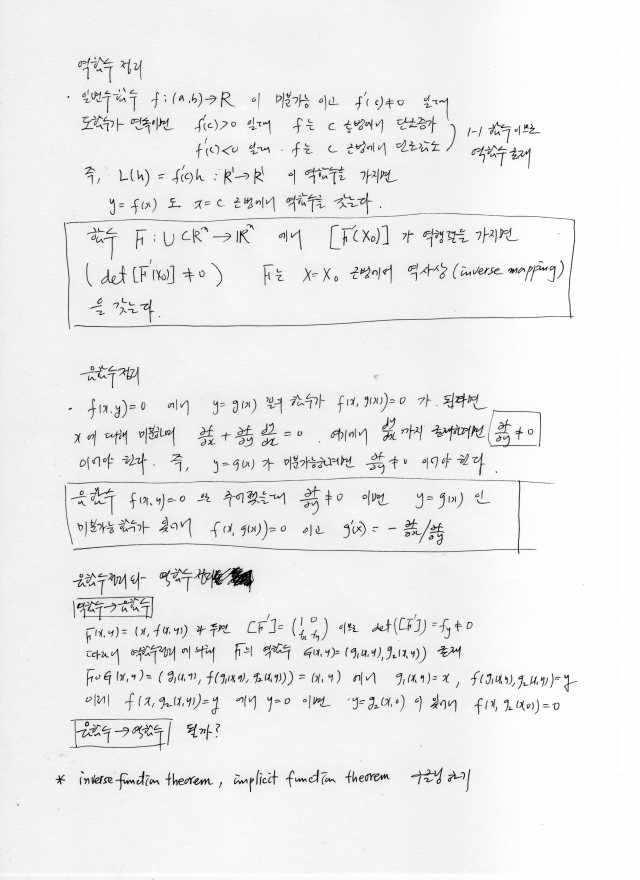 역함수 정리
· 일변수함수 f : (a,b) → R 이 미분가능 이고 f'(c)≠0 일때
도함수가 연속이면 f'(c)>0 일때 f는 c 근방에서 단조증가
f'(c)<0 일때. f는 c 근방에서 단조감소
1-1 함수 이므로
역함수 존재
즉, L(h) = f'(c)h : R¹→R¹ 이 역함수를 가지면
y = f(x) 도 x=c 근방에서 역함수를 갖는다.
함수 F : U ⊂ Rⁿ → Rⁿ 에서 [F'(X₀)] 가 역행렬을 가지면
( det [F'(X₀)] ≠ 0 ) F는 X = X₀ 근방에서 역사상 (inverse mapping)
을 갖는다.
음함수정리
· f(x,y)=0 에서 y= g(x) 꼴의 함수가 f(x, g(x))=0 가 된다면
x 에 대해 미분하여 ∂f/∂x + ∂f/∂y dy/dx = 0 . 여기에서 dy/dx 까지 존재하려면 ∂f/∂y ≠ 0
이어야 한다. 즉, y=g(x) 가 미분가능하려면 ∂f/∂y ≠ 0 이어야 한다.
음함수 f(x,y)=0 으로 주어졌을때 ∂f/∂y ≠ 0 이면 y=g(x) 인
미분가능 함수가 있어서 f(x, g(x))=0 이고 g'(x) = - ∂f/∂x / ∂f/∂y
음함수정리와 역함수정리
역함수→음함수
F(x,y) = (x, f(x,y)) 라 두면 [F'] = (1 0 fx fy) 이므로 det([F']) = fy ≠ 0
따라서 역함수정리에 의해 F의 역함수 G(x,y)=(g₁(x,y), g₂(x,y)) 존재
F∘G(x,y) = (g₁(x,y), f(g₁(x,y), g₂(x,y))) = (x, y) 에서 g₁(x,y)= x, f(g₁(x,y), g₂(x,y))=y
이제 f(x, g₂(x,y))=y 에서 y=0 이면 y=g₂(x,0) 이 있어서 f(x, g₂(x,0))=0
음함수→역함수 될까?
* inverse function theorem, implicit function theorem 구글링 하기